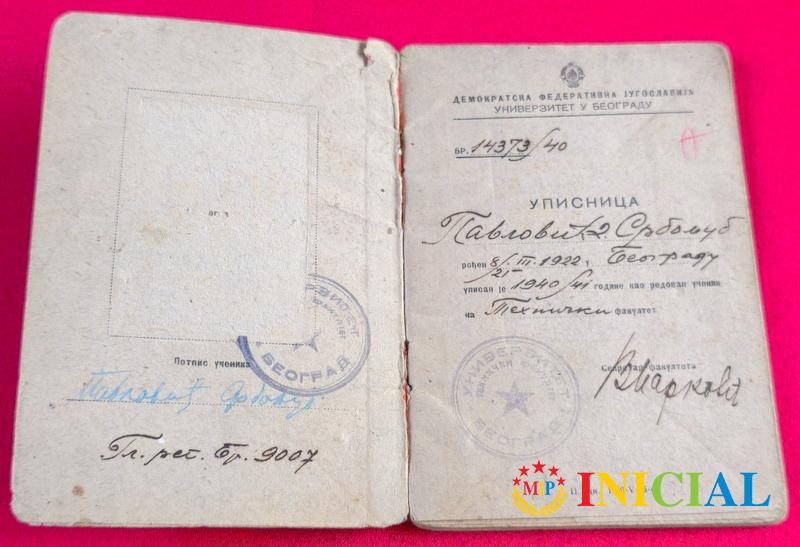 Потпис ученика
Павловић Србољуб
Гл. рег. бр. 9007
УНИВЕРЗИТЕТ
БЕОГРАД
ДЕМОКРАТСКА ФЕДЕРАТИВНА ЈУГОСЛАВИЈА
УНИВЕРЗИТЕТ У БЕОГРАДУ
БР. 14373/40
УПИСНИЦА
Павловић Србољуб
рођен 8/21. III. 1922 у Београду
уписан је 1940/41 године као редован ученик
на Технички факултет
Секретар факултета
В Марковић
УНИВЕРЗИТЕТ
ТЕХНИЧКИ ФАКУЛТЕТ
БЕОГРАД
MIP INICIAL